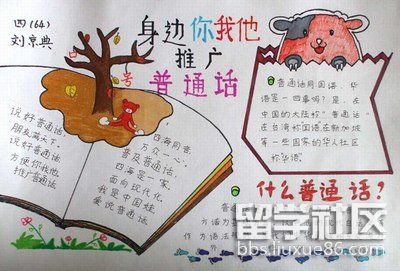 四(64)
刘京典
身边你我他
推广
普通话
说好普通话
朋友满天下
说好普通话
方便你我他
推广普通话
四海同音
万众一心
普及普通话
四海是一家
面向现代化
我是中国娃
爱说普通话
普通话同国语、华
语是一回事吗?是,在
中国的大陆称"普通话"
在台湾称国语在新加坡
等一些国家的华人社区
称华语
什么普通话?
普通话
方话为
作方语法
留学社区
bbs.liuxue86.com